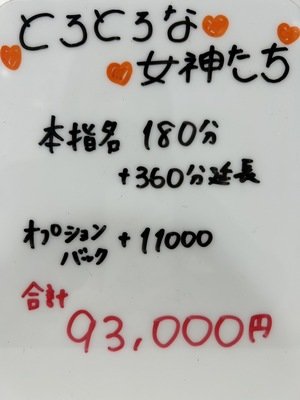 とろとろな
女神たち
本指名 180分
+360分延長
オプション
バック +11000
合計
93,000円